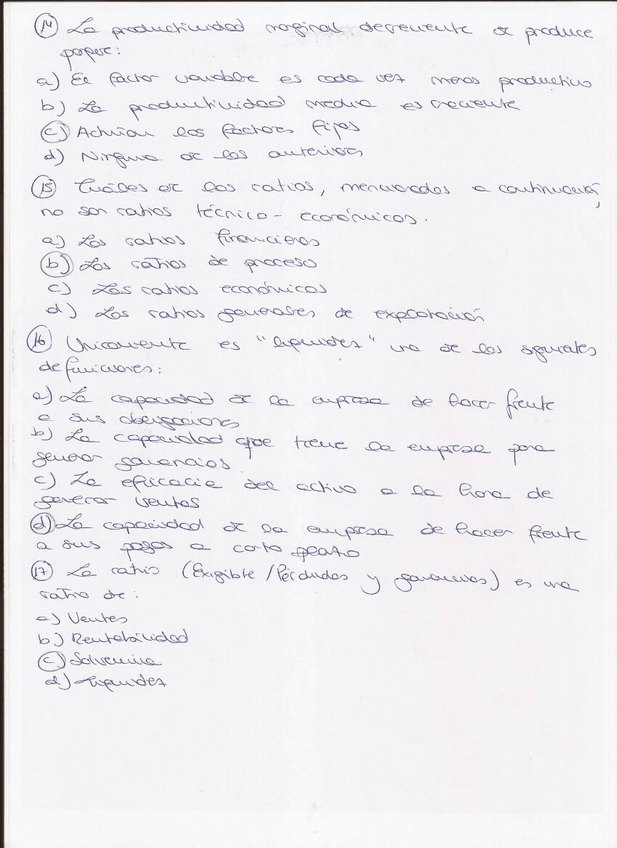 14) La productividad marginal decreciente se produce
porque:
a) El factor variable es cada vez menos productivo
b) La productividad media es creciente
c) Actúan los factores fijos
d) Ninguna de las anteriores
15) Cuáles de los ratios, mencionados a continuación,
no son ratios técnico-económicos.
a) Los ratios financieros
b) Los ratios de proceso
c) Los ratios económicos
d) Los ratios generales de explotación
16) Unicamente es "liquidez" una de las siguientes
definiciones:
a) La capacidad de la empresa de hacer frente
a sus obligaciones
b) La capacidad que tiene la empresa para
generar ganancias
c) La eficacia del activo a la hora de
generar ventas
d) La capacidad de la empresa de hacer frente
a sus pagos a corto plazo
17) La ratio (Exigible/Pérdidas y ganancias) es una
ratio de:
a) Ventas
b) Rentabilidad
c) Solvencia
d) Liquidez